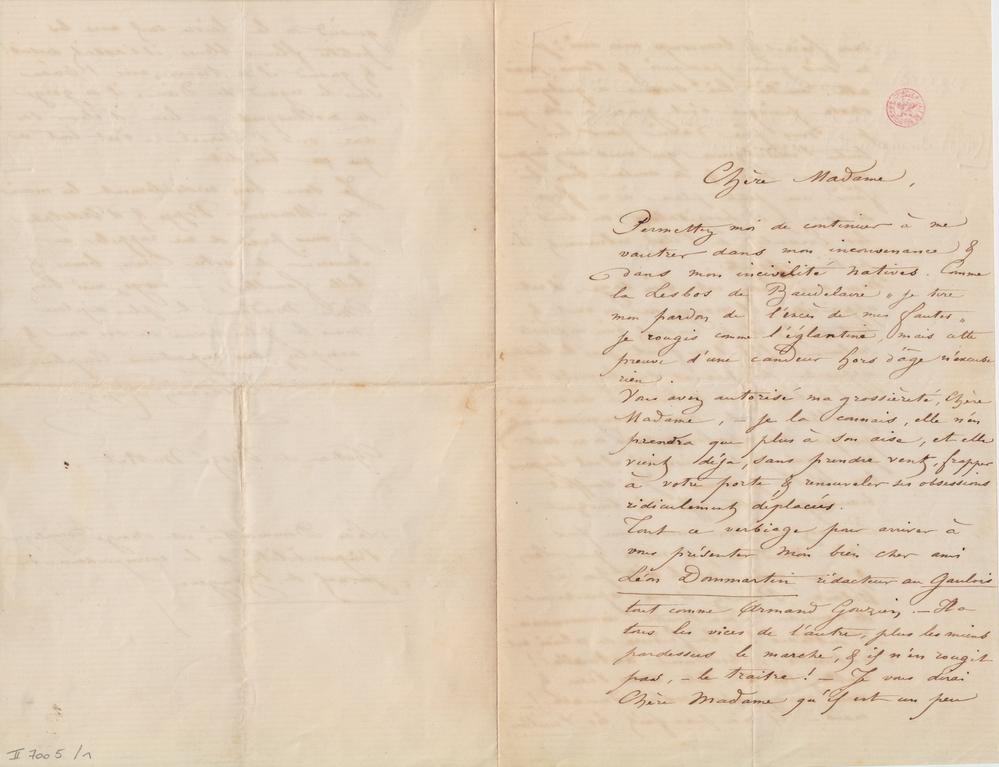 Chère Madame,
Permettez moi de continuer à me
vautrer dans mon inconvenance &
dans mon incivilité natives. Comme
la Lesbos de Baudelaire « je tire
mon pardon de l'excès de mes fautes »
je rougis comme l'églantine, mais cette
preuve d'une candeur hors d'âge n'excuse
rien.
Vous avez autorisé ma grossièreté, Chère
Madame, – je la connais, elle n'en
prendra que plus à son aise, et elle
vient déjà, sans prendre vent, frapper
à votre porte & renouveler ses obsessions
ridiculement déplacées.
Tout ce verbiage pour arriver à
vous présenter mon bien cher ami
Léon Dommartin rédacteur au Gaulois
tout comme Armand Gouzien. – Il a
tous les vices de l'autre, plus les miens
pardessus le marché, & il n'en rougit
pas, – le traître ! – Je vous dirai
Chère Madame qu'il est un peu
II 7005/1